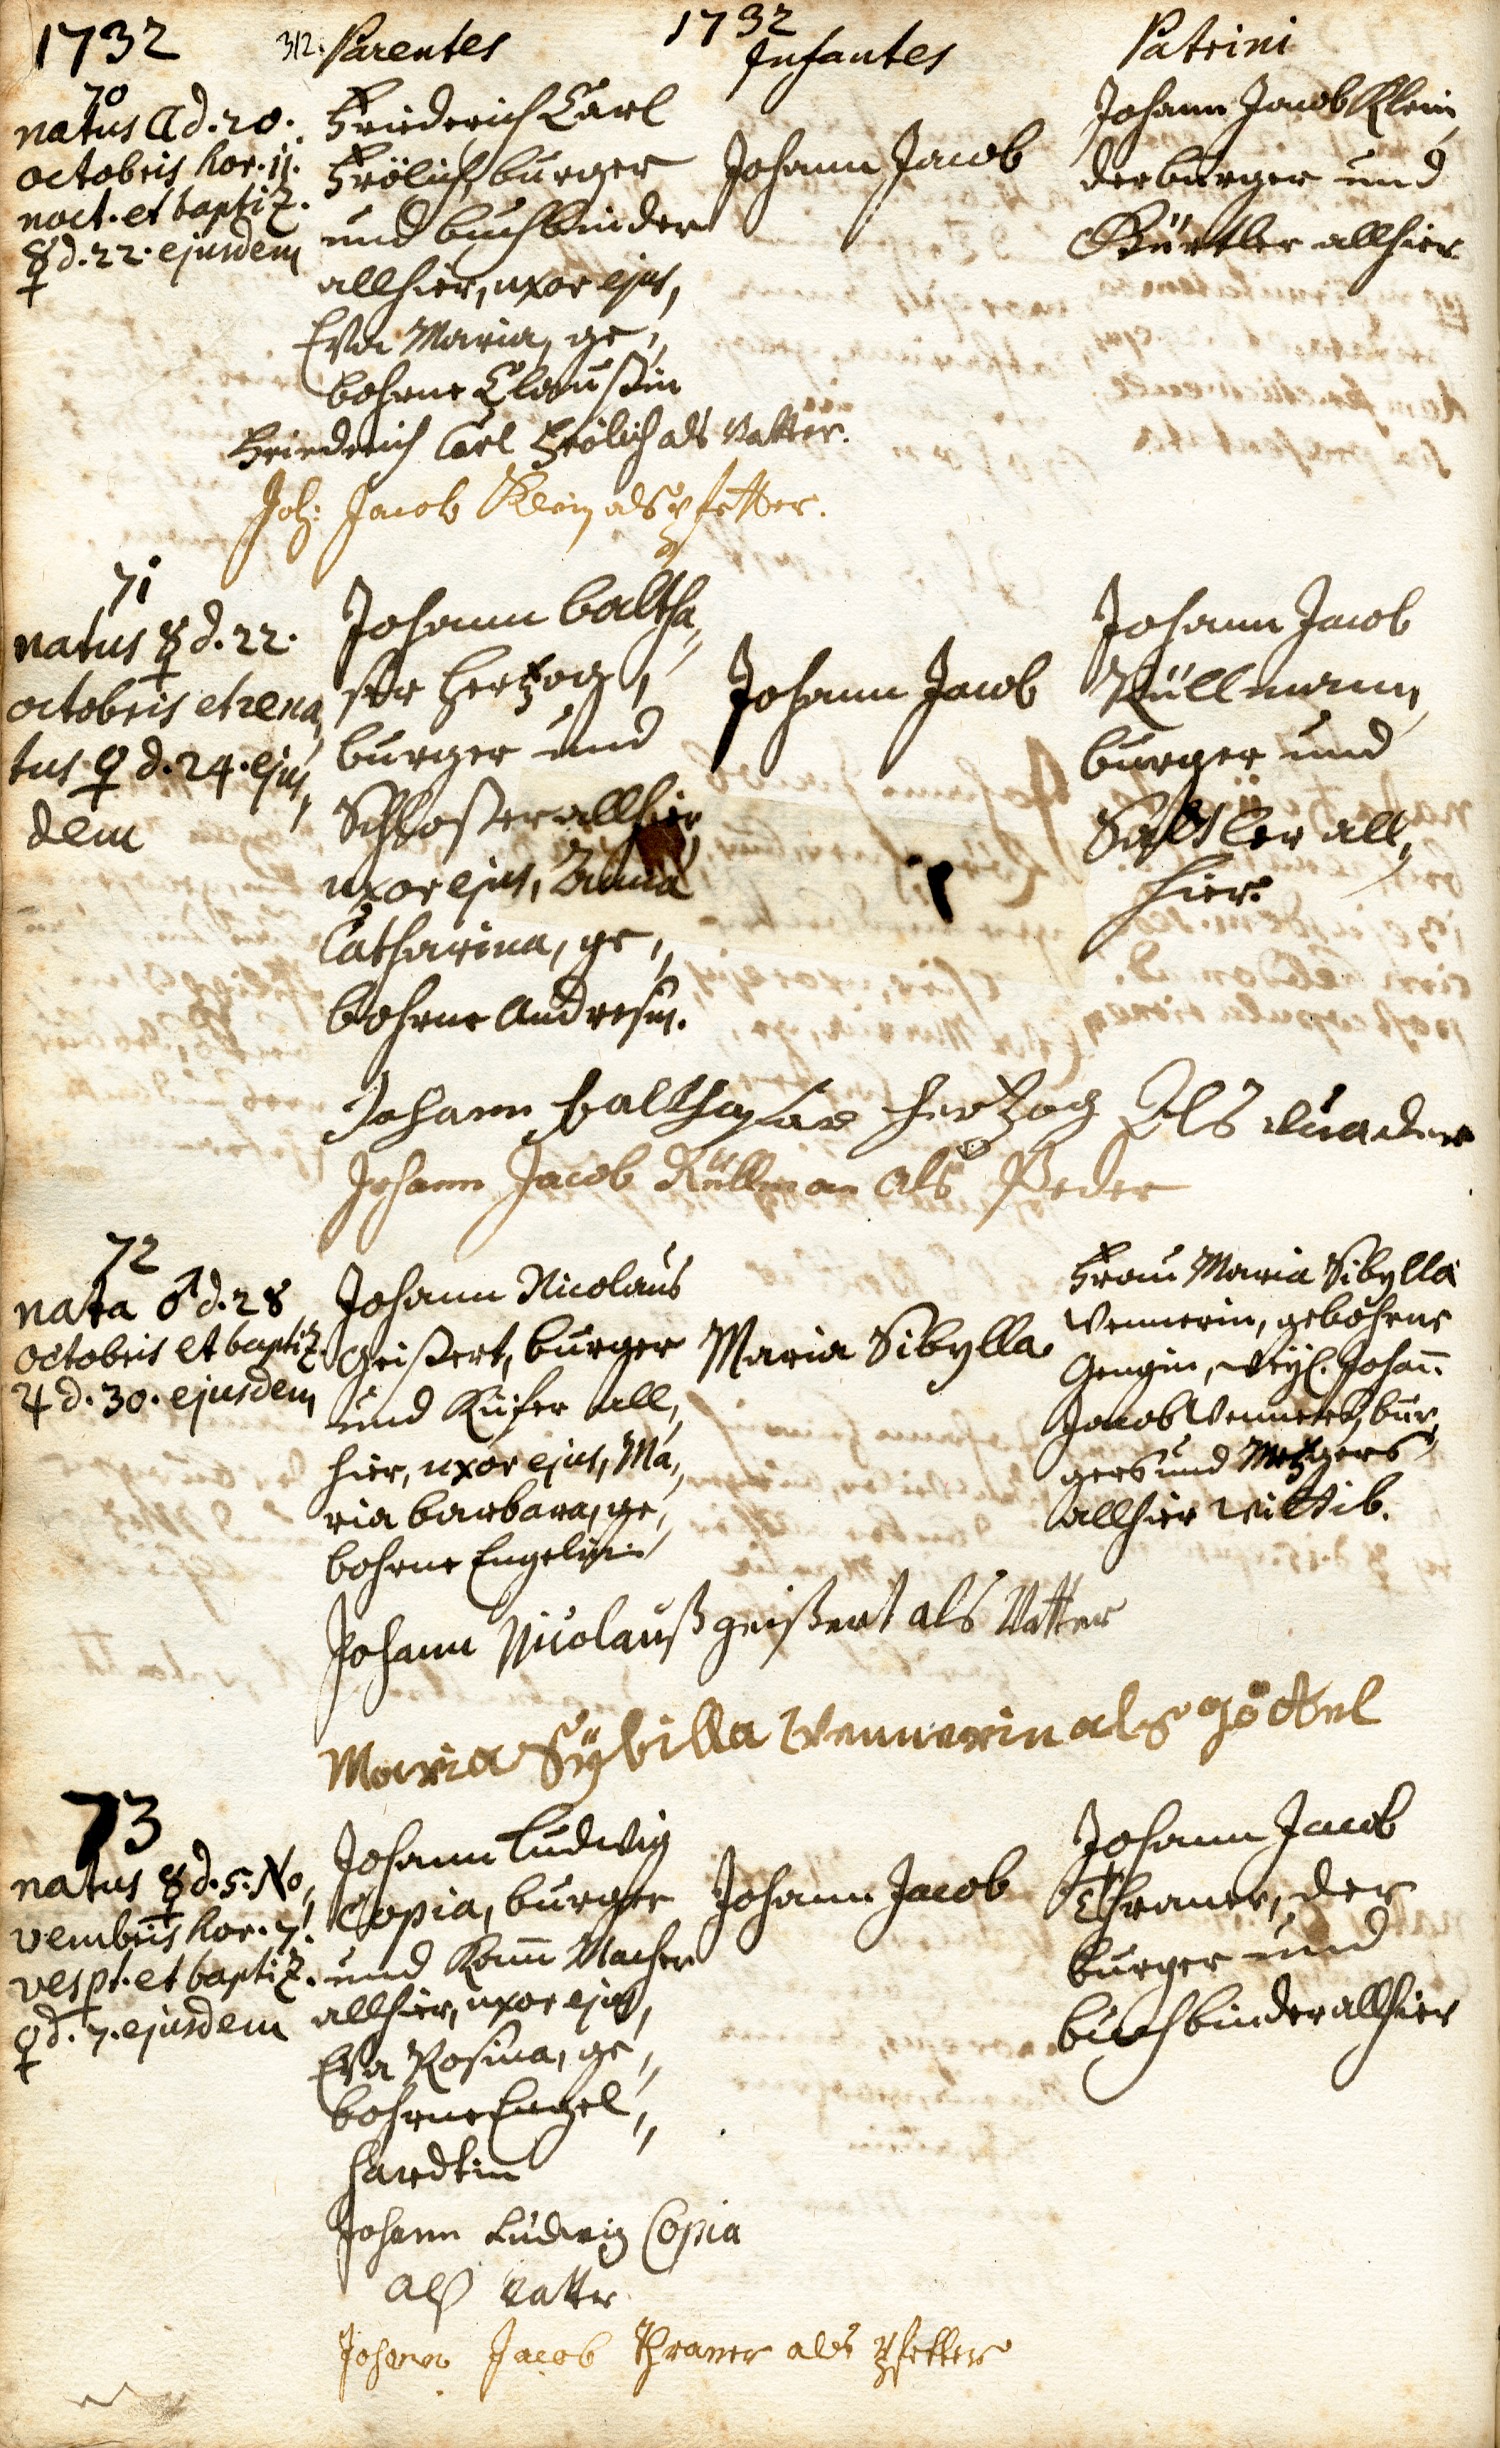 1732
312.
Parentes
1732
Infantes
Patrini
70
natus ☾ d. 20.
octobris hor. 11.
noct. et baptiz.
☿ d. 22. ejusdem
Friederich Carl
Frölich, burger
und buchbinder
allhier, uxor ejus,
Eva Maria, ge„
bohrne Claußin
Johann Jacob
Johann Jacob Klein,
der burger und
Gürtler allhier
Friedrich Carl Frölich als Vatter.
Joh: Jacob Klein als pfetter.
71
natus ☿ d. 22.
octobris et rena„
tus ♀ d. 24. ejus„
dem
Johann baltha„
sar Hertzog,
burger und
Schloßer allhier
uxor ejus, Anna
Catharina, ge„
bohrne Andresin.
Johann Jacob
Johann Jacob
Rüllmann,
burger und
Sattler all„
hier.
Johann balthasar Hertzog Als vuader
Johann Jacob Rüllman als Peder
72
nata ♂ d. 28
octobris et baptiz.
♃ d. 30. ejusdem
Johann Nicolaus
Geißert, burger
und Küfer all„
hier, uxor ejus, Ma„
ria barbara, ge„
bohrne Engelin
Maria Sibylla
Frau Maria Sibylla
Wennerin, gebohrne
Gengin, weyl. Johañ
Jacob Wenners, bur„
gers und Metzgers
allhier Wittib.
Johann Nicolauß geißert als Vatter
Maria Sÿbilla Wennerin als göttel
73
natus ☿ d. 5. No„
vembris hor. 7.
vespt. et baptiz.
♀ d. 7. ejusdem
Johann Ludwig
Copia, burger
und Kam̃ Macher
allhier, uxor ejus,
Eva Rosina, ge„
bohrne Engel„
hardtin
Johann Jacob
Johann Jacob
Thraner, der
burger und
buchbinder allhier
Johann Ludwig Copia
alß Vatter
Johann Jacob Thraner als Pfetter